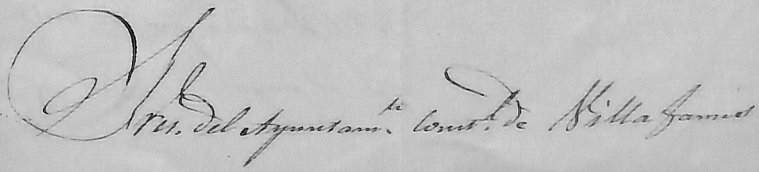 Sres. del Ayuntam.to Const.l de Villafames